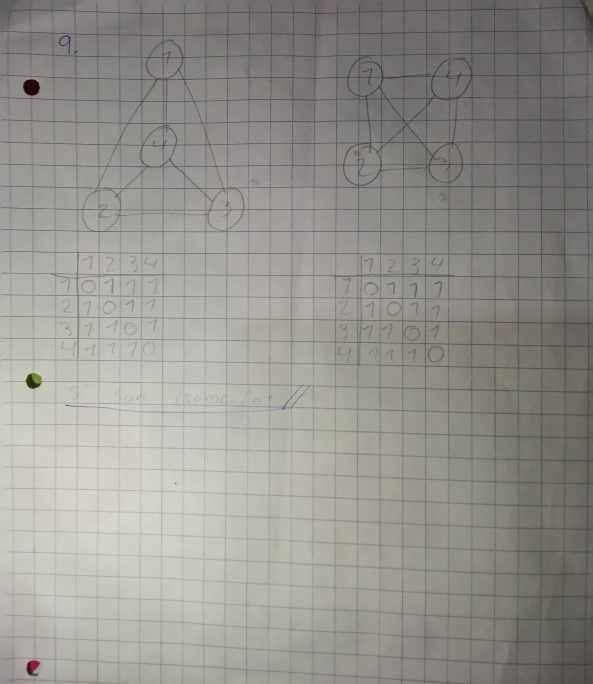 9.
1
4
2 3
1 4
2 3
1 2 3 4
1 0 1 1 1
2 1 0 1 1
3 1 1 0 1
4 1 1 1 0
1 2 3 4
1 0 1 1 1
2 1 0 1 1
3 1 1 0 1
4 1 1 1 0
Si son isomorfos